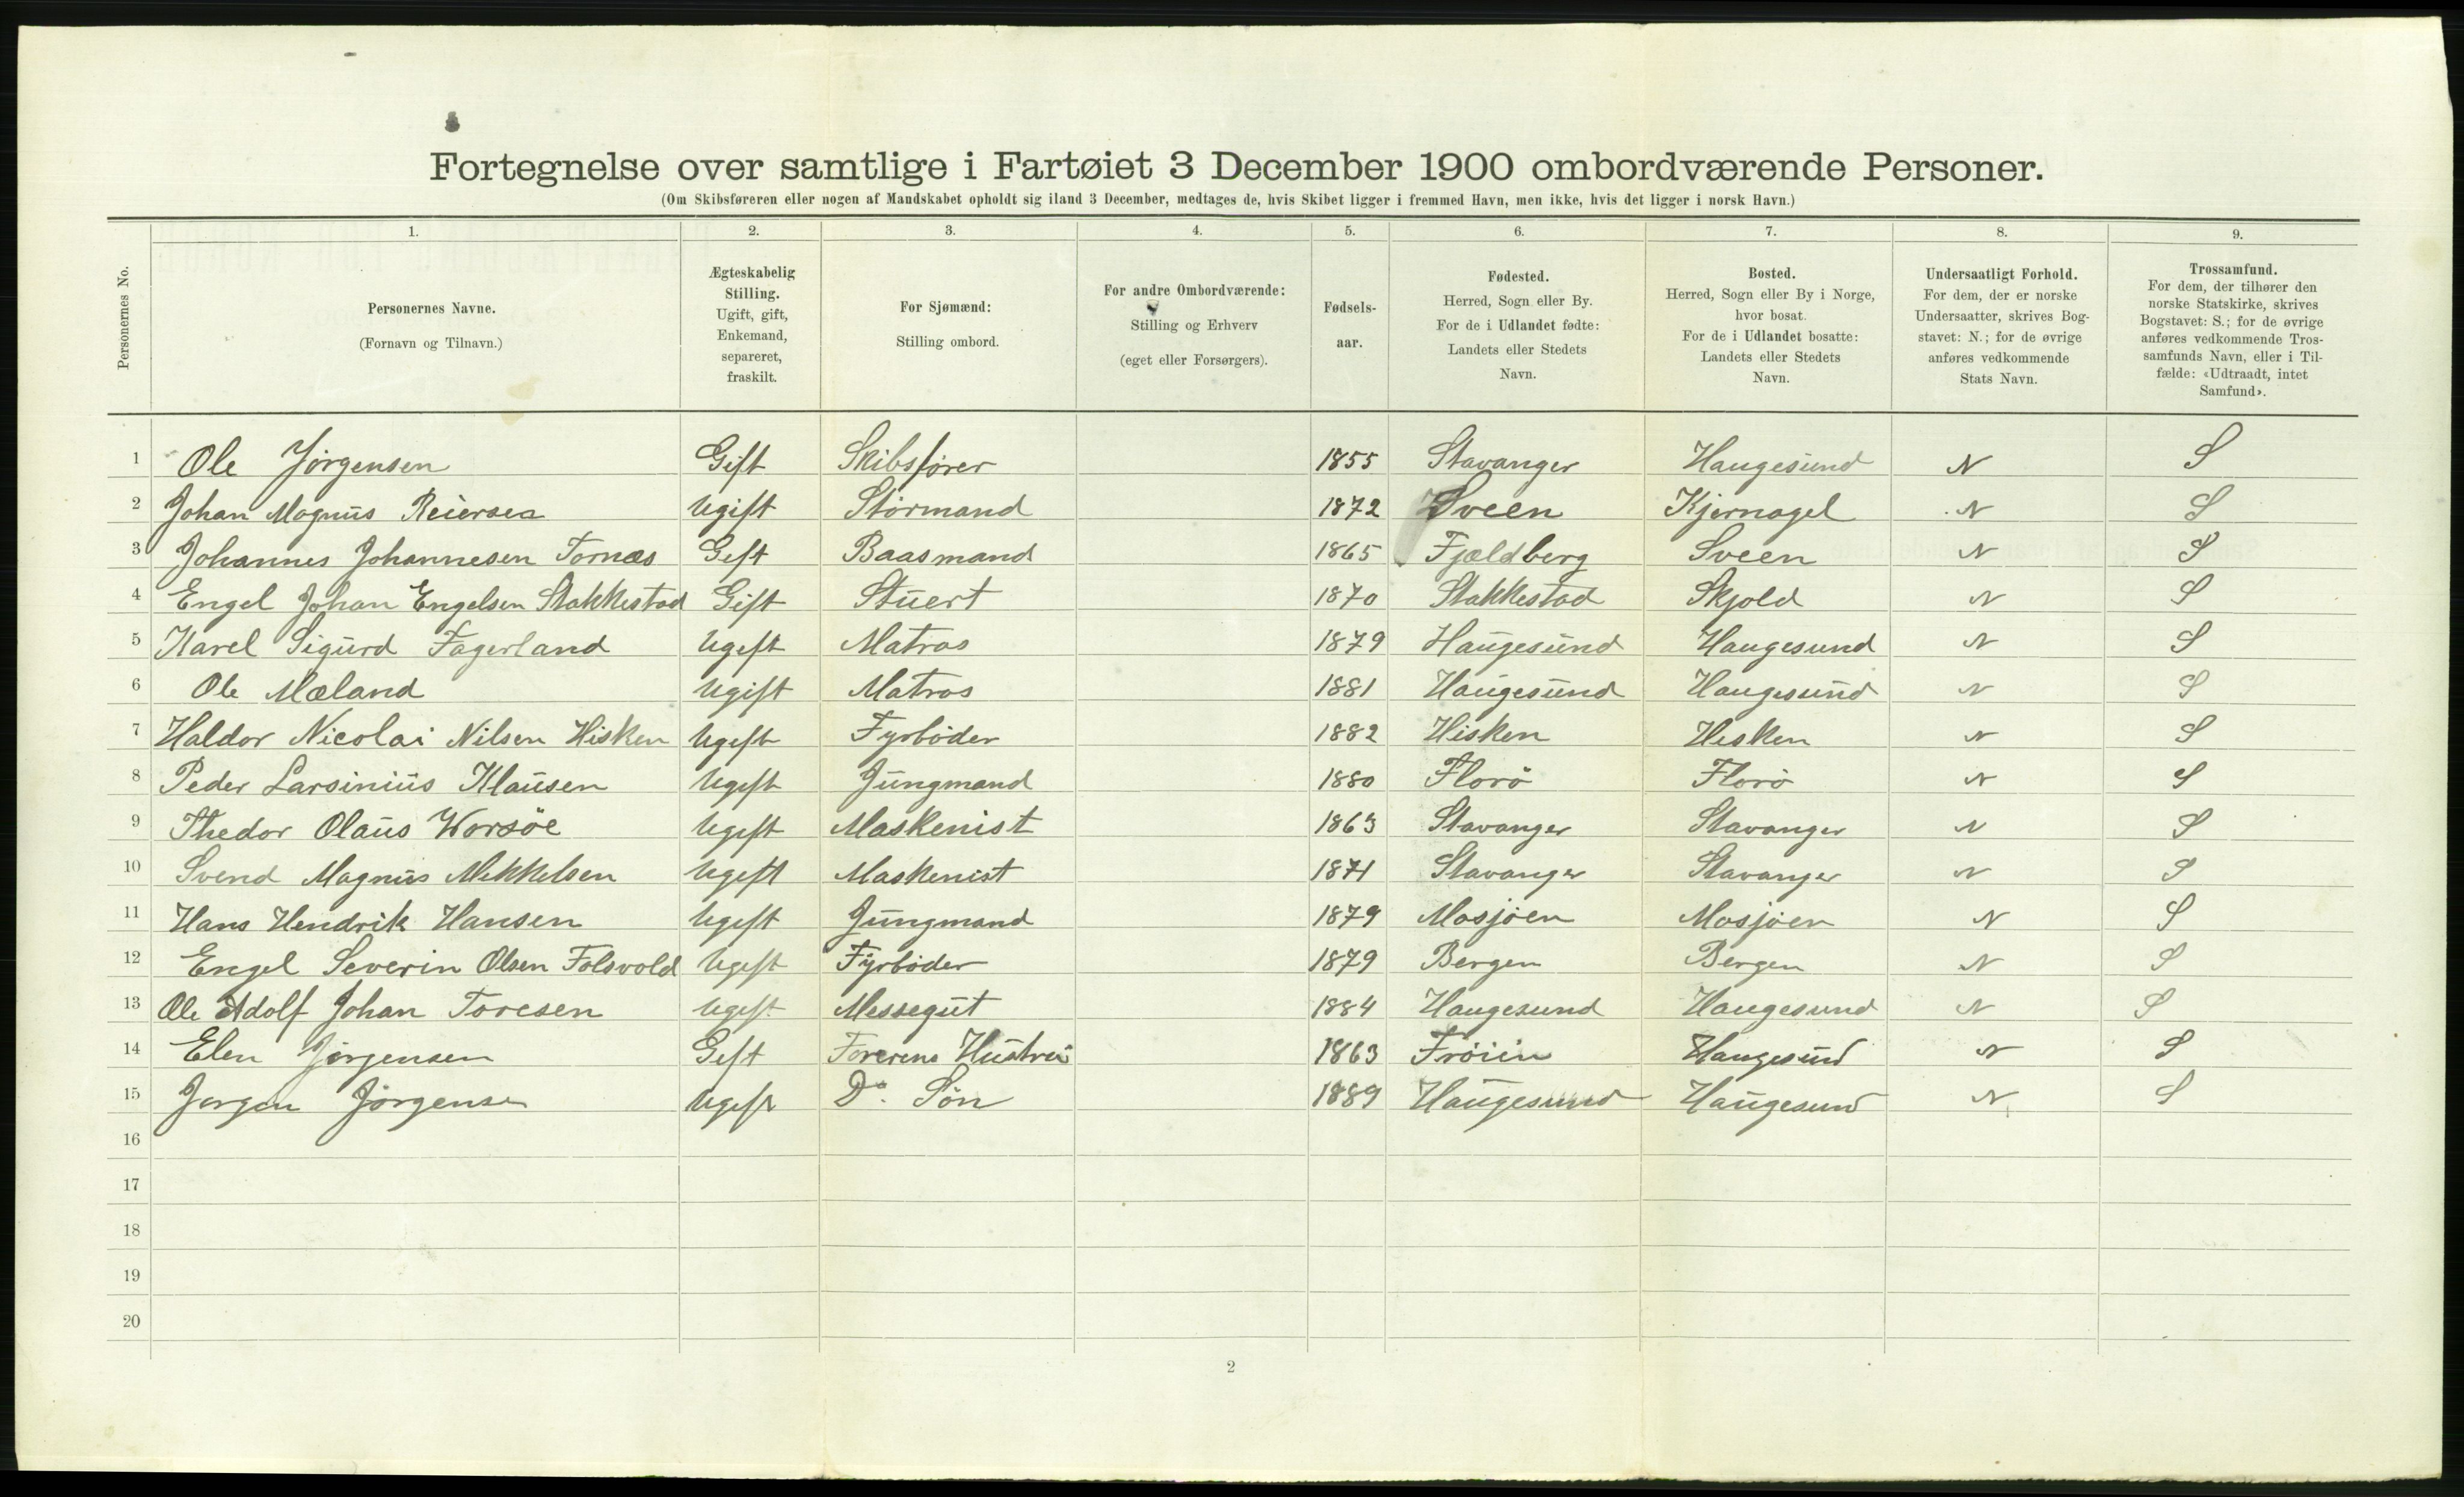 Fortegnelse over samtlige i Fartøiet 3 December 1900 ombordværende Personer.
(Om Skibsføreren eller nogen af Mandskabet opholdt sig iland 3 December, medtages de, hvis Skibet ligger i fremmed Havn, men ikke, hvis det ligger i norsk Havn.)
Personernes No.
1.
Personernes Navne.
(Fornavn og Tilnavn.)
2.
Ægteskabelig
Stilling.
Ugift, gift,
Enkemand,
separeret,
fraskilt.
3.
For Sjømænd:
Stilling ombord.
4.
For andre Ombordværende:
Stilling og Erhverv
(eget eller Forsørgers).
5.
Fødsels-
aar.
6.
Fødested.
Herred, Sogn eller By.
For de i Udlandet fødte:
Landets eller Stedets
Navn.
7.
Bosted.
Herred, Sogn eller By i Norge,
hvor bosat.
For de i Udlandet bosatte:
Landets eller Stedets
Navn.
8.
Undersaatligt Forhold.
For dem, der er norske
Undersaatter, skrives Bog-
stavet: N.; for de øvrige
anføres vedkommende
Stats Navn.
9.
Trossamfund.
For dem, der tilhører den
norske Statskirke, skrives
Bogstavet: S.; for de øvrige
anføres vedkommende Tros-
samfunds Navn, eller i Til-
fælde: «Udtraadt, intet
Samfund».
1 Ole Jörgensen Gift Skibsförer 1855 Stavanger Haugesund N S
2 Johan Magnus Reiersen Ugift Störmand 1872 Sveen Kjernagel N S
3 Johannes Johannesen Tornæs Gift Baasmand 1865 Fjældberg Sveen N S
4 Engel Johan Engelsen Stakkestad Gift Stuert 1870 Stakkestad Skjold N S
5 Karel Sigurd Fagerland Ugift Matros 1879 Haugesund Haugesund N S
6 Ole Mæland Ugift Matros 1881 Haugesund Haugesund N S
7 Haldor Nicolai Nilsen Hisken Ugift Fyrböder 1882 Hisken Hisken N S
8 Peder Larsinius Klausen Ugift Jungmand 1880 Florö Florö N S
9 Thedor Olaus Worsöe Ugift Maskenist 1863 Stavanger Stavanger N S
10 Svend Magnus Mikkelsen Ugift Maskenist 1871 Stavanger Stavanger N S
11 Hans Hendrik Hansen Ugift Jungmand 1879 Mosjöen Mosjöen N S
12 Engel Severin Olsen Folsvold Ugift Fyrböder 1879 Bergen Bergen N S
13 Ole Adolf Johan Toresen Ugift Messegut 1884 Haugesund Haugesund N S
14 Elen Jörgensen Gift Förerens Hustru 1863 Haugesund N S
15 Jörgen Jörgensen Ugift Do. Sön 1889 Haugesund Haugesund N S
16
17
18
19
20
2